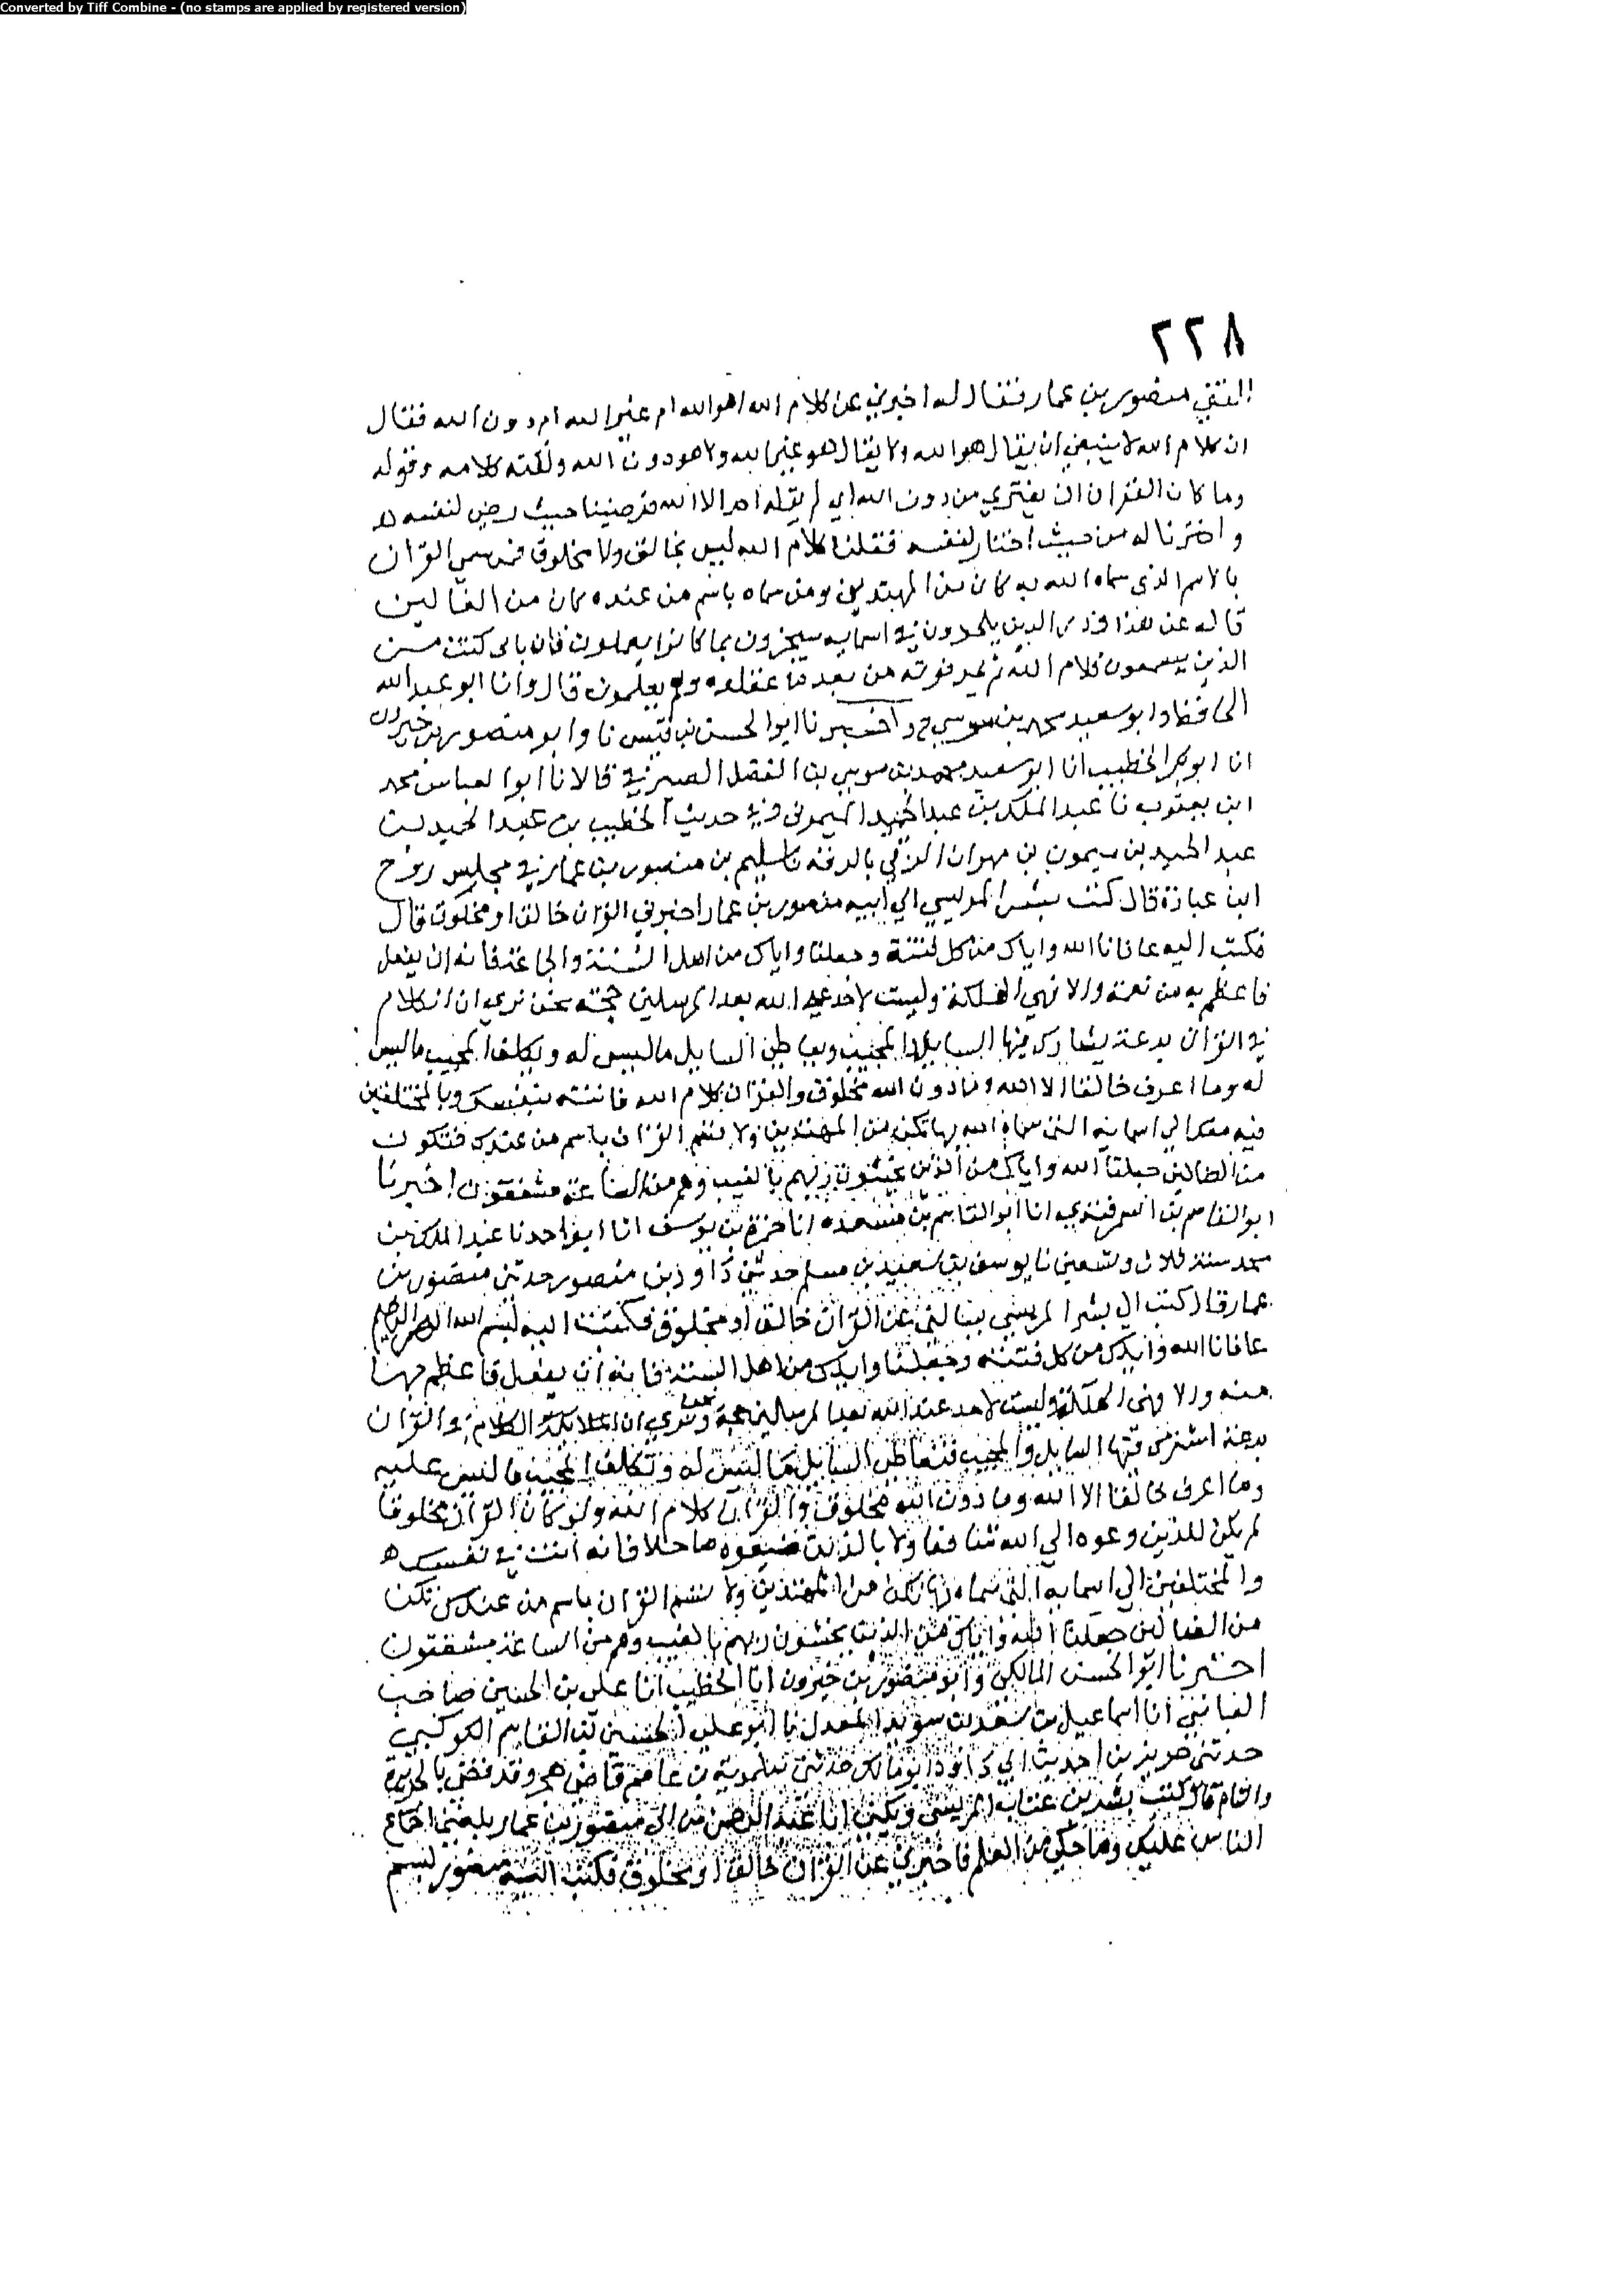 Converted by Tiff Combine - (no stamps are applied by registered version)
٢٢٨
التقى منصور بن عمار فقال له اخبرني عن كلام الله اهو الله ام غير الله ام دون الله فقال
ان كلام الله لا ينبغي ان يقال هو الله ولا يقال هو غير الله ولا هو دون الله ولكنه كلامه وقوله
وما كان القران ان يفتري من دون الله اي لم يقله احد الا الله فرضينا حيث رضي لنفسه
واخترنا له من حيث اختار لنفسه فقلنا كلام الله ليس بخالق ولا مخلوق فمن سمى القرآن
بالاسم الذي سماه الله به كان من المهتدين ومن سماه باسم من عنده كان من الغالين
قاله عن هذا وذر الذين يلحدون في اسمايه سيجزون بما كانوا يعملون فان بابى كنت من
الذين يسمعون كلام الله ثم يحرفونه من بعد ما عقلوه وهم يعلمون قال وانا ابو عبد الله
الحافظ وابو سعيد محمد بن موسى ح واخبرنا ابو الحسن بن قبيس نا وابو منصور بن خيرون
انا ابو بكر الخطيب انا ابو سعيد محمد بن موسى بن الفضل الصيرفي قالا نا ابو العباس محمد
ابن يعقوب نا عبد الملك بن عبد الحميد الميموني وفي حديث الخطيب بن عبد الحميد بن
عبد الحميد بن ميمون بن مهران الرقي بالرقة نا سليم بن منصور بن عمار في مجلس روح
ابن عبادة قال كتب بشر المريسي الي ابيه منصور بن عمار اخبرني القرآن خالق او مخلوق قال
فكتب اليه عافانا الله واياك من كل فتنة وجعلنا واياك من اهل السنة والجماعة فانه ان يفعل
فاعظم به من نعمة والا فهي الهلكة وليست لاحد على الله بعد المرسلين حجة نحن نرى ان الكلام
في القرآن بدعة يشارك فيها السايل والمجيب وتعاطى السايل ما ليس له وتكلف المجيب ما ليس
له وما اعرف خالقا الا الله وما دون الله مخلوق والقرآن كلام الله فانته بنفسك وبالمختلفين
فيه معك الي اسمايه التي سماه الله بها تكن من المهتدين ولا تسم القرآن باسم من عندك فتكون
من الضالين جعلنا الله واياك من الذين يخشون ربهم بالغيب وهم من الساعة مشفقون اخبرنا
ابو القاسم بن السمرقندي انا ابو القاسم بن مسعدة انا حمزة بن يوسف انا ابو احمد نا عبد الملك بن
محمد سنة ثلاث وتسعين نا يوسف بن سعيد بن مسلم حدثني داود بن منصور حدثني منصور بن
عمار قال كتب الي بشر المريسي يسالني عن القرآن خالق او مخلوق فكتبت اليه بسم الله الرحمن الرحيم
عافانا الله واياك من كل فتنة وجعلنا واياك من اهل السنة فانه ان يفعل فاعظم بها
منة والا فهي الهلكة وليست لاحد عند الله بعد المرسلين حجة نحن نرى ان الكلام في القرآن
بدعة اشترك فيها السايل والمجيب فتعاطى السايل ما ليس له وتكلف المجيب ما ليس عليه
وما اعرف خالقا الا الله وما دون الله مخلوق والقرآن كلام الله ولو كان القرآن مخلوقا
لم يكن للذين وعوه الي الله شافعا ولا بالذين ضيعوه ماحلا فانه انت في نفسك
والمختلفين الي اسمايه التي سماه بها تكن من المهتدين ولا تسم القرآن باسم من عندك تكن
من الضالين جعلنا الله واياك من الذين يخشون ربهم بالغيب وهم من الساعة مشفقون
اخبرنا ابو الحسن المالكي وابو منصور بن خيرون انا الخطيب انا علي بن الحسين صاحب
العباسي انا اسماعيل بن سعد بن سويد المعدل نا ابو علي الحسين بن القاسم الكوكبي
حدثني حريز بن احمد بن ابي دؤاد ابو مالك حدثني سلمويه بن عاصم قاضي هجر وقد قضى بالجزيرة
والشام قال كتب بشر بن غياث المريسي ويكنى ابا عبد الرحمن الى منصور بن عمار بلغني اجتماع
الناس عليك وما حكي من العلم فاخبرني عن القرآن خالق او مخلوق فكتب اليه منصور بسم